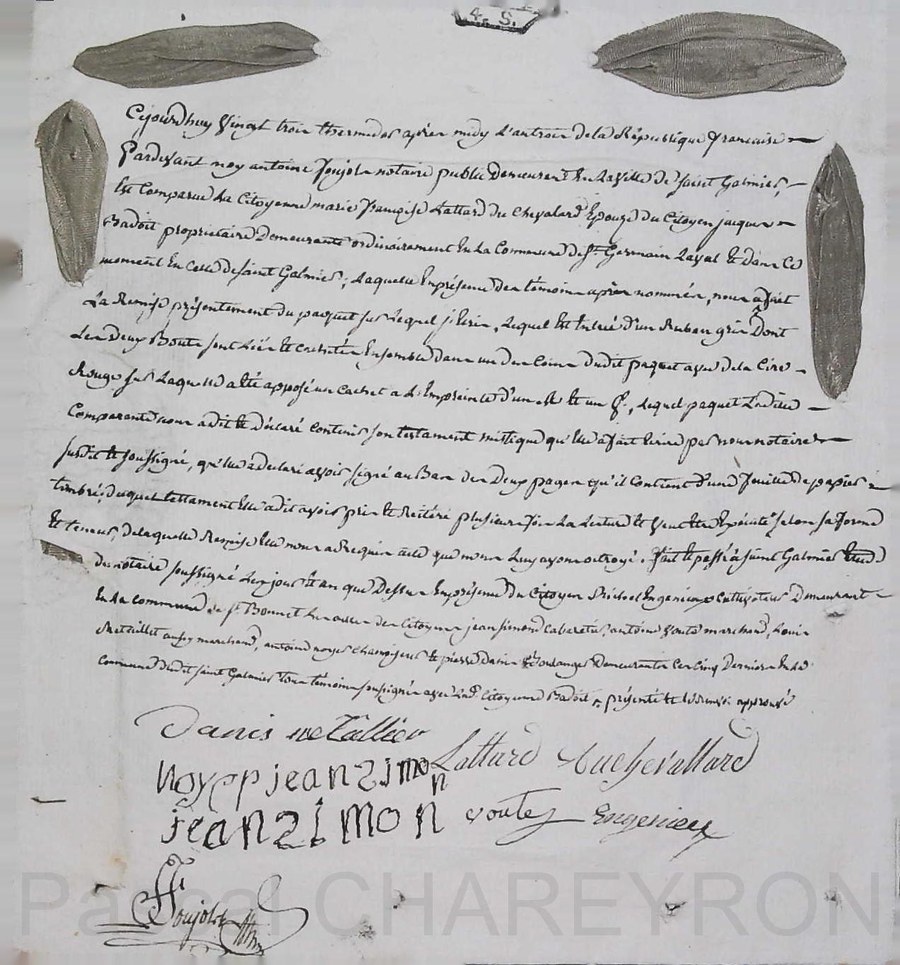 4. S.
Cejourdhuy Vingt trois thermidor après midy L'an trois de la République francaise
Pardevant moy antoine Foujols notaire public Demeurant En La ville de Saint Galmier,
Est Comparue La Citoyenne marie françoise Lattard du Chevalard Epouze du Citoyen jacques
Badoit propriétaire Demeurante ordinairement En La Commune de St. Germain Laval Et dans Ce
moment En Celle de Saint Galmier; Laquelle En présence des témoins après nommés, nous a fait
La Remise présentement du paquet sur Lequel j'Ecris, Lequel Est Entouré d'un Ruban gris Dont
Les deux Bouts sont Liés Et cachetés Ensemble dans un des Coins dudit paquet avec de la Cire
Rouge sur Laquelle a été apposé un Cachet a L'Empreinte d'un Et un , Lequel paquet Ladite
Comparante nous a dit Et déclaré Contenir son testament mistique qu'Elle a fait Ecrire par nous notaire
susdit Et soussigné, qu'Elle a declaré avoir signé au Bas des Deux pages qu'il Contient d'une feuille de papier
timbré; duquel testament Elle a dit avoir pris Et Reitéré plusieurs fois La Lecture Et veut Etre Exécuté selon sa forme
Et teneur, de laquelle Remise Elle nous a Requis acte que nous Luy avons octroyé. fait Et passé à Saint Galmier Etude
du notaire soussigné Les jour Et an que Dessus En présence du Citoyen Michel Engenieux Cultivateur Demeurant
En La commune de St. Bonnet Les oules des Citoyens jean simond Cabaretier, antoine voute marchand, Louis
Metaillet aussy marchand, antoine noyer Chamoiseur Et pierre Danis Boulanger Demeurants Ces Cinq Derniers En La
Commune dudit Saint Galmier tous témoins soussignés avec Lad. Citoyenne Badoit présente Et approuvé
Danis metallier
noyer p jean zimon Lattard duchevallard
jean zimon voute Engenieux
Foujols
Pascal CHAREYRON